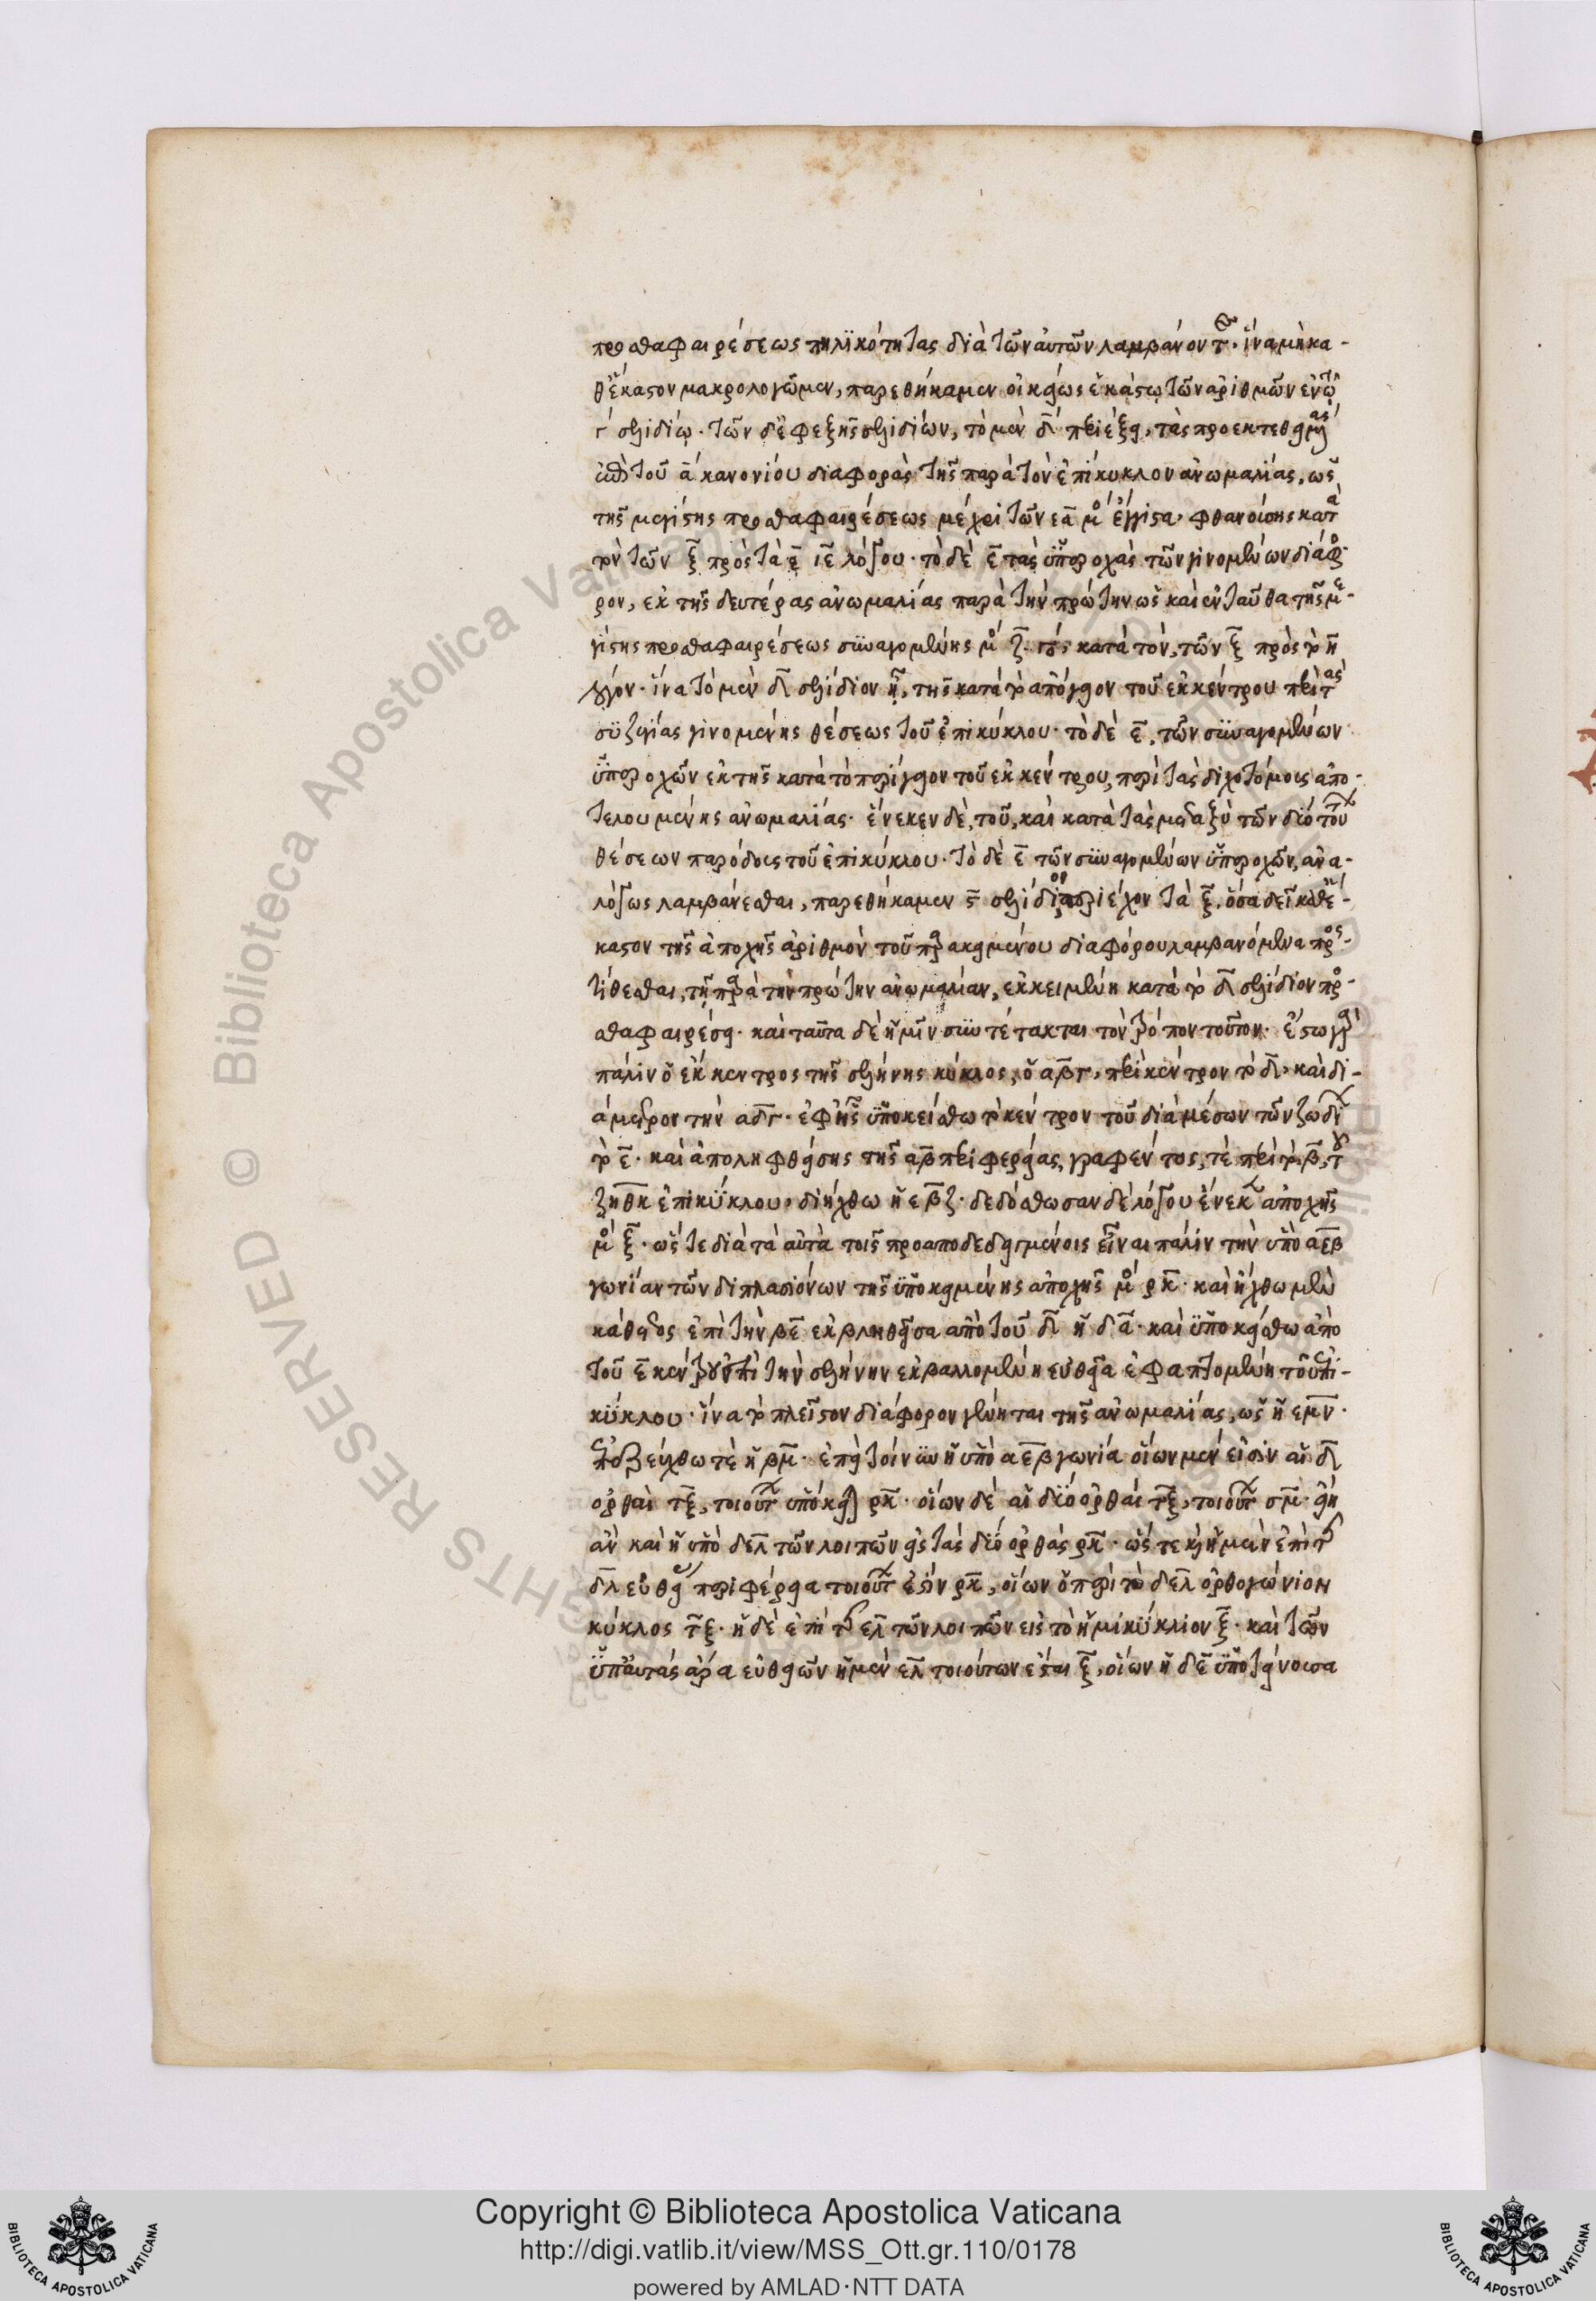 προσθαφαιρέσεως πηλικότητας διὰ τῶν αὐτῶν λαμβάνοντες. ἵνα μὴ κα-
θ' ἕκαστον μακρολογῶμεν, παρεθήκαμεν οἰκείως ἑκάστῳ τῶν ἀριθμῶν ἐν τῷ
γ σελιδίῳ. τῶν δὲ ἐφεξῆς σελιδίων, τὸ μὲν δ περιέξει, τὰς προεκτεθειμένας
τοῦ α κανονίου διαφορὰς τῆς παρὰ τὸν ἐπίκυκλον ἀνωμαλίας, ὡς
τῆς μεγίστης προσθαφαιρέσεως μέχρι τῶν ε α μο ἔγγιστα φθανούσης κατὰ
τὸν τῶν ξ πρὸς τὰ ε ιε λόγου. τὸ δὲ ε τὰς ὑπεροχὰς τῶν γινομένων διαφό-
ρων, ἐκ τῆς δευτέρας ἀνωμαλίας παρὰ τὴν πρώτην ὡς καὶ ἐνταῦθα τῆς με-
γίστης προσθαφαιρέσεως συναγομένης μο ζ κατὰ τὸν, τῶν ξ πρὸς τὸ η
λόγον. ἵνα τὸ μὲν δ σελίδιον ᾖ, τῆς κατὰ τὸ ἀπόγειον τοῦ ἐκκέντρου περὶ τὰς
συζυγίας γινομένης θέσεως τοῦ ἐπικύκλου. τὸ δὲ ε, τῶν συναγομένων
ὑπεροχῶν ἐκ τῆς κατὰ τὸ περίγειον τοῦ ἐκκέντρου, περὶ τὰς διχοτόμους ἀπο-
τελουμένης ἀνωμαλίας. ἕνεκεν δὲ, τοῦ, καὶ κατὰ τὰς μεταξὺ τῶν δύο τούτων
θέσεων παρόδους τοῦ ἐπικύκλου. τὸ δὲ ε τῶν συναγομένων ὑπεροχῶν, ἀνα-
λόγως λαμβάνεσθαι, παρεθήκαμεν ϛ σελίδιον περιέχον τὰ ξ, ὅσα δεῖ καθ' ἕ-
καστον τῆς ἀποχῆς ἀριθμὸν τοῦ παρακειμένου διαφόρου λαμβανόμενα προσ-
τίθεσθαι, τῇ παρὰ τὴν πρώτην ἀνωμαλίαν, ἐκκειμένῃ κατὰ τὸ δ σελίδιον προ-
σθαφαιρέσει. καὶ ταῦτα δὲ ἡμῖν συντέτακται τὸν τρόπον τοῦτον. ἔστω γὰρ
πάλιν ὁ ἔκκεντρος τῆς σελήνης κύκλος, ὁ αβγ, περὶ κέντρον τὸ δ, καὶ δι-
άμετρον τὴν αδγ. ἐφ' ἧς ὑποκείσθω τὸ κέντρον τοῦ διὰ μέσων τῶν ζωδίων
τὸ ε. καὶ ἀποληφθείσης τῆς αβ περιφερείας, γραφέντος, τε περὶ τὸ β, τοῦ
ζηθκ ἐπικύκλου, διήχθω ἡ εβζ. δεδόσθωσαν δὲ λόγου ἕνεκεν ἀποχῆς
μο ξ. ὥστε διὰ τὰ αὐτὰ τοῖς προαποδεδειγμένοις εἶναι πάλιν τὴν ὑπὸ αεβ
γωνίαν τῶν διπλασιόνων τῆς ὑποκειμένης ἀποχῆς μο ρκ. καὶ ἤχθω μὲν
κάθετος ἐπὶ τὴν βε ἐκβληθεῖσα ἀπὸ τοῦ δ ἡ δλ. καὶ ὑποκείσθω ἀπὸ
τοῦ ε κέντρου ἐπὶ τὴν σελήνην ἐκβαλλομένη εὐθεῖα ἐφαπτομένη τοῦ ἐπι-
κύκλου. ἵνα τὸ πλεῖστον διάφορον γένηται τῆς ἀνωμαλίας, ὡς ἡ εμν.
ἐπεζεύχθω τε ἡ βμ. ἐπεὶ τοίνυν ἡ ὑπὸ αεβ γωνία οἵων μέν εἰσιν αἱ δ
ὀρθαὶ τξ, τοιούτων ὑπόκειται ρκ. οἵων δὲ αἱ δύο ὀρθαί τξ, τοιούτων σμ. εἴη
ἂν καὶ ἡ ὑπὸ δελ τῶν λοιπῶν εἰς τὰς δύο ὀρθὰς ρκ. ὥστε καὶ ἡ μὲν ἐπὶ τῆς
δλ εὐθείας περιφέρεια τοιούτων ἐστὶν ρκ, οἵων ὁ περὶ τὸ δελ ὀρθογώνιον
κύκλος τξ. ἡ δὲ ἐπὶ τῆς ελ τῶν λοιπῶν εἰς τὸ ἡμικύκλιον ξ. καὶ τῶν
ὑπ' αὐτὰς ἄρα εὐθειῶν ἡ μὲν ελ τοιούτων ἔσται ξ, οἵων ἡ δε ὑποτείνουσα